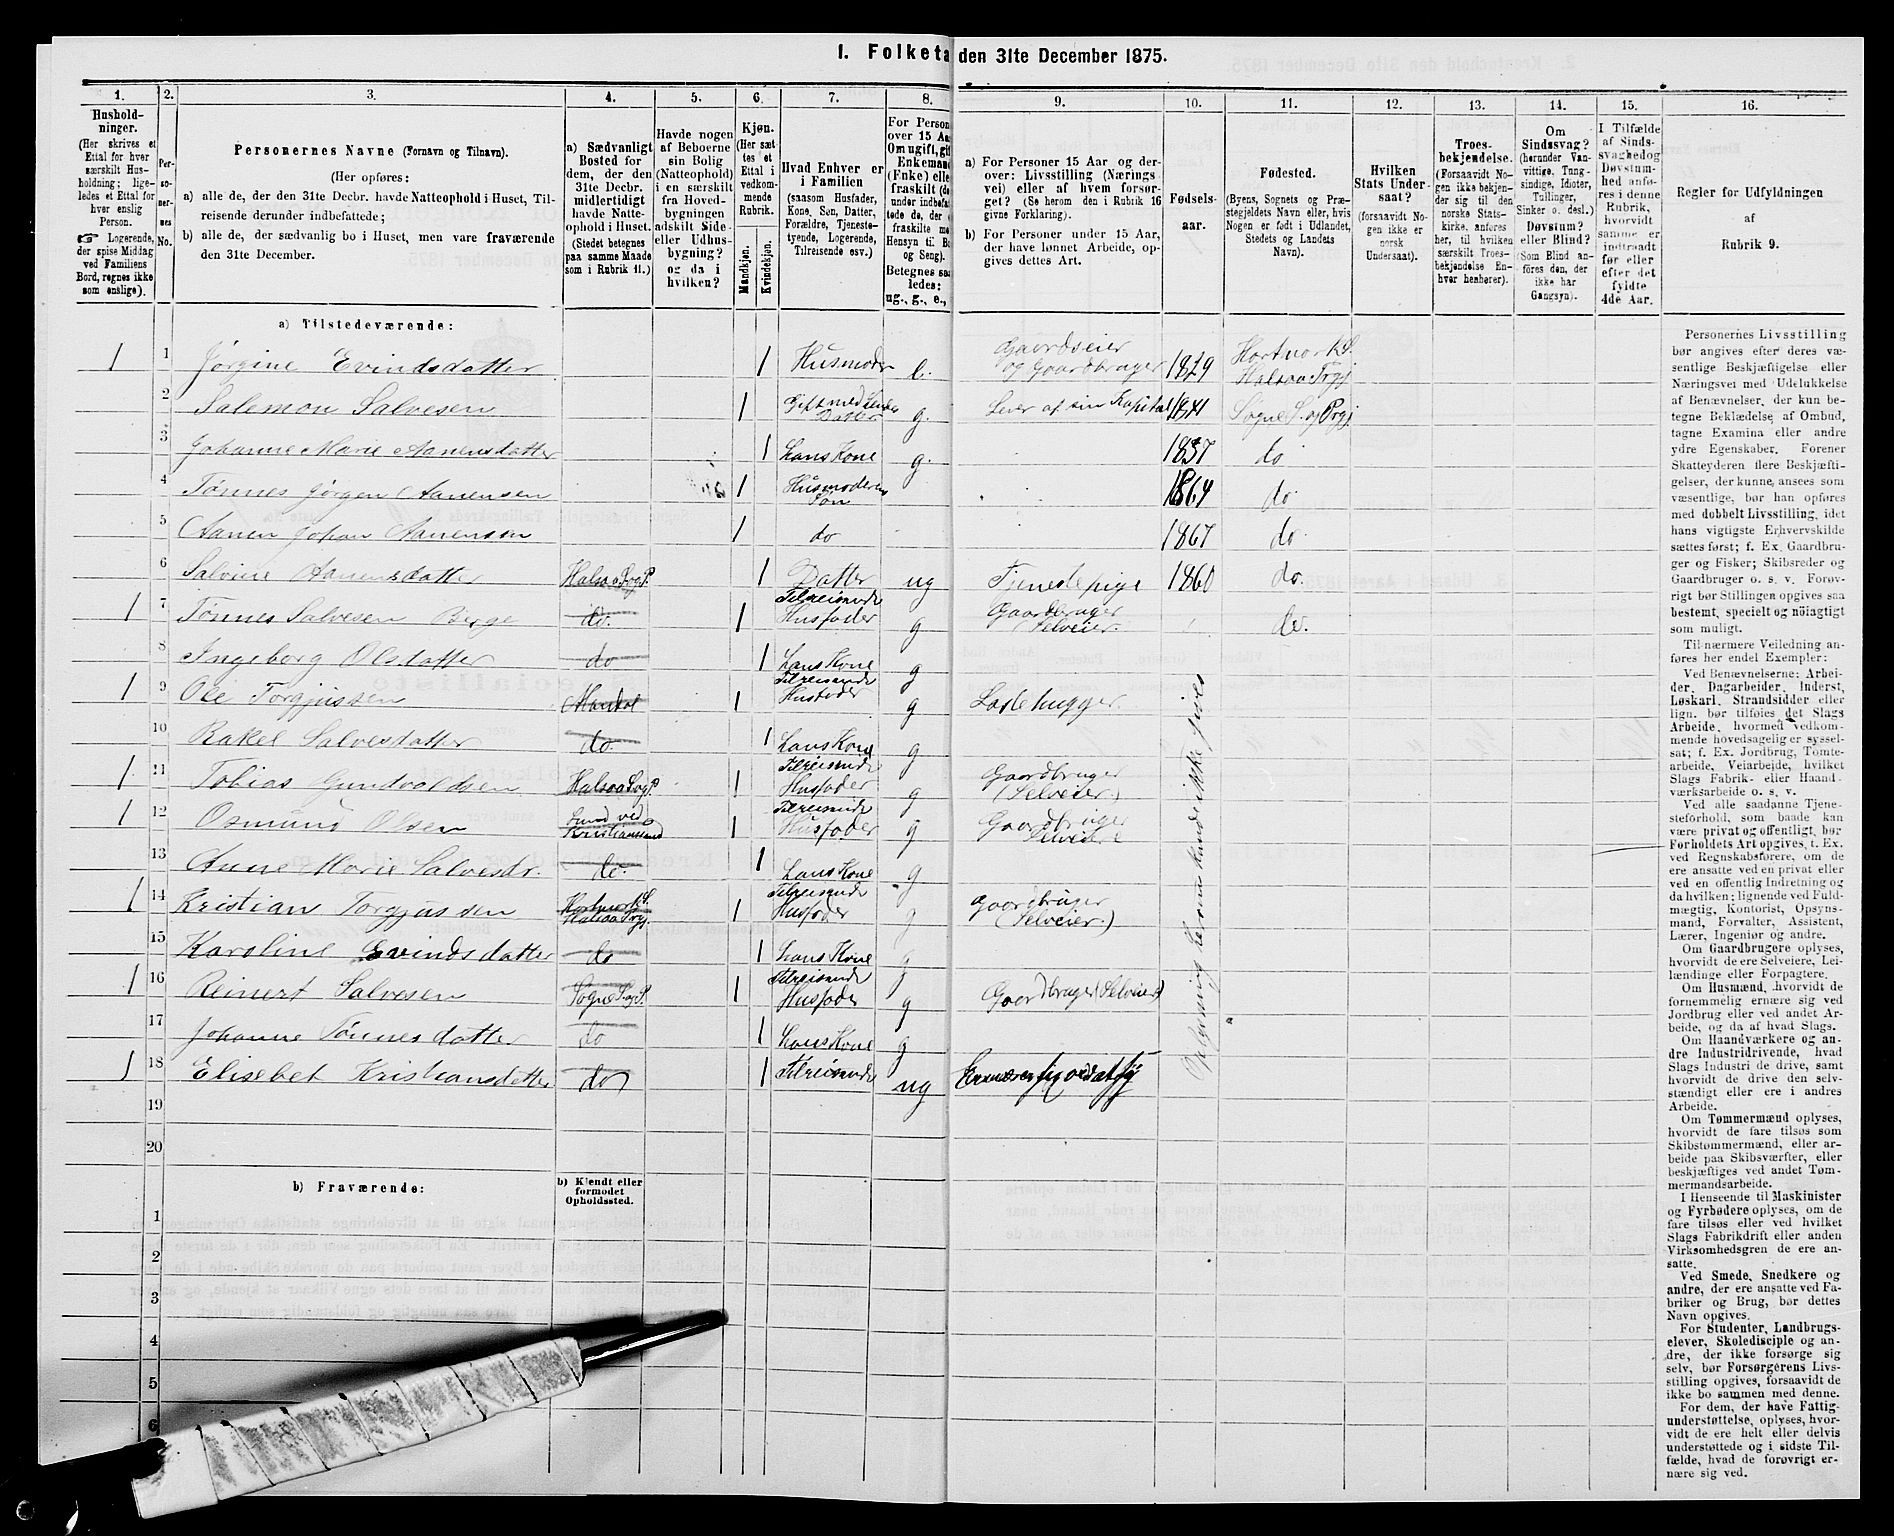 I. Folketa den 31te December 1875.
1.
2.
3.
4.
5.
6.
7.
8.
9.
10.
11.
12.
13.
14.
15.
16.
Hushold-
ninger.
(Her skrives et
Ettal for hver
særskilt Hus-
holdning; lige-
ledes et Ettal for
hver enslig
Person.
☞ Logerende,
der spise Middag
ved Familiens
Bord, regnes ikke
som enslige).
Per-
so-
ner-
nes
No.
Personernes Navne (Fornavn og Tilnavn).
(Her opføres:
a) alle de, der den 31te Decbr. havde Natteophold i Huset, Til-
reisende derunder indbefattede;
b) alle de, der sædvanlig bo i Huset, men vare fraværende
den 31te December.
a) Sædvanligt
Bosted for
dem, der den
31te Decbr.
midlertidigt
havde Natte-
ophold i Huset.
(Stedet betegnes
paa samme Maade
som i Rubrik 11.)
Havde nogen
af Beboerne
sin Bolig
(Natteophold)
i en særskilt
fra Hoved-
bygningen
adskilt Side-
eller Udhus-
bygning?
og da i
hvilken?
Kjøn.
(Her sæt-
tes et
Ettal i
vedkom-
mende
Rubrik.
Mandkjøn.
Kvindekjøn.
Hvad Enhver er
i Familien
(saasom Husfader,
Kone, Søn, Datter,
Forældre, Tjeneste-
tyende, Logerende,
Tilreisende osv.)
For Person
over 15 Aa
Om ugift, gif
Enkemand
(Enke) elle
fraskilt (de
under indbefat
tede de, der e
fraskilte me
Hensyn til Bo
og Seng).
Betegnes saa
ledes:
ug., g., e.,
a) For Personer 15 Aar og der-
over: Livsstilling (Nærings-
vei) eller af hvem forsør-
get? (Se herom den i Rubrik 16
givne Forklaring).
b) For Personer under 15 Aar,
der have lønnet Arbeide, op-
gives dettes Art.
Fødsels-
aar.
Fødested.
(Byens, Sognets og Præ-
stegjeldets Navn eller, hvis
Nogen er født i Udlandet,
Stedets og Landets
Navn).
Hvilken
Stats Under-
saat?
(forsaavidt No-
gen ikke er
norsk
Undersaat).
Troes-
bekjendelse.
(Forsaavidt No-
gen ikke bekjen-
der sig til den
norske Stats-
kirke, anføres
her, til hvilken
særskilt Troes-
bekjendelse En-
hver henhører).
Om
Sindssvag?
(herunder Van-
vittige, Tung-
sindige, Idioter,
Tullinger,
Sinker o. desl.)
Døvstum?
eller Blind?
(Som Blind an-
føres den, der
ikke har
Gangsyn).
I Tilfælde
af Sinds-
svaghed og
Døvstum-
hed anfø-
res i denne
Rubrik,
hvorvidt
samme er
indtraadt
før eller
efter det
fyldte
4de Aar.
Regler for Udfyldningen
af
Rubrik 9.
a) Tilstedeværende:
1 1 Jørgine Evindsdatter 1 Husmoder e. Gaardseier og Gaardbruger 1829 Hartmark S. Halsaa Prgj
2 Salemon Salvesen 1 Gift med Datter g. Lever af sin Kapital 1841 Sogne S. og Prgj.
3 Johanne Marie Aanensdatter 1 Hans Kone g. 1837 do
4 Tønnes Jørgen Aanensen 1 Husmoderens Søn 1864 do.
5 Aanen Johan Aanensen 1 do 1867 do.
6 Salvine Aanensdatter Halsaa S. og P. 1 Datter ug Tjenestepige 1860 do.
1 7 Tønnes Salvesen Berge do. 1 Tilreisende Husfader g Gaardbruger (Selveier. do.
8 Ingeborg Olsdatter do 1 Hans Kone g
1 9 Ole Torgjussen Mandal 1 Tilreisende Husfader g Lastehugger.
10 Rakel Salvesdatter do. 1 Hans Kone g
1 11 Tobias Gundvaldsen Halsaa S. og P 1 Tilreisende Husfader g Gaardbruger (Selveier.)
1 12 Osmund Olsen Sund ved Kristianssand 1 Tilreisende Husfader g Gaardbruger Selveier
13 Anne Marie Salvesdr. do. 1 Hans Kone g
1 14 Kristian Torgjussen Hartmark S. Halsaa Prgj. 1 Tilreisende Husfader g Gaardbruger (Selveier.)
15 Karoline Evindsdatter do 1 Hans Kone g
1 16 Reinert Salvesen Sogne S. og P. 1 Tilreisende Husfader g Gaardbruger (Selveier)
17 Johanne Tønnesdatter do 1 Hans Kone g
1 18 Elisebet Kristiansdatter do 1 Tilreisende ug
Oplysning herom kunde ikke gives
19
20
b) Fraværende:
b) Kjendt eller
formodet
Opholdssted.
1
2
3
4
5
6
Personernes Livsstilling
bør angives efter deres væ-
sentlige Beskjæftigelse eller
Næringsvei med Udelukkelse
af Benævnelser, der kun be-
tegne Beklædelse af Ombud,
tagne Examina eller andre
ydre Egenskaber. Forener
Skatteyderen flere Beskjæfti-
gelser, der kunne ansees som
væsentlige, bør han opføres
med dobbelt Livsstilling, idet
hans vigtigste Erhvervskilde
sættes først; f. Ex. Gaardbru-
ger og Fisker; Skibsreder og
Gaardbruger o. s. v. Forøv-
rigt bør Stillingen opgives saa
bestemt, specielt og nöiagtigt
som muligt.
Til nærmere Veiledning an-
føres her endel Exempler:
Ved Benævnelserne: Arbei-
der, Dagarbeider, Inderst,
Løskarl, Strandsidder eller
lign. bør tilføies det Slags
Arbeide, hvormed vedkom-
mende hovedsagelig er syssel-
sat; f. Ex. Jordbrug, Tømte-
arbeide, Veiarbeide, hvilket
Slags Fabrik- eller Haand-
værksarbeide o. s. v.
Ved alle saadanne Tjene-
steforhold, som baade kan
være privat og offentligt, bør
Forholdets Art opgives, t. Ex.
ved Regnskabsførere, om de
ere ansatte ved en privat eller
ved en offentlig Indretning og
da hvilken; lignende ved Fuld-
mægtig, Kontorist, Opsyns-
mand, Forvalter, Assistent,
Lærer, Ingeniør og andre.
Om Gaardbrugere oplyses,
hvorvidt de ere Selveiere, Lei-
lændinge eller Forpagtere.
Om Husmænd, hvorvidt de
fornemmelig ernære sig ved
Jordbrug eller ved andet Ar-
beide, og da af hvad Slags.
Om Haandværkere og an-
dre Industridrivende, hvad
Slags Industri de drive, samt
hvorvidt de drive den selv-
stændigt eller ere i andres
Arbeide.
Om Tømmermænd oplyses,
hvorvidt de fare tilsøs som
Skibstømmermænd, eller ar-
beide paa Skibsværfter, eller
beskjæftiges ved andet Tøm-
mermandsarbeide.
I Henseende til Maskinister
og Fyrbødere oplyses, om de
fare tilsøs eller ved hvilket
Slags Fabrikdrift eller anden
Virksomhedsgren de ere an-
satte.
Ved Smede, Snedkere og
andre, der ere ansatte ved Fa-
briker og Brug, bør dettes
Navn opgives.
For Studenter, Landbrugs-
elever, Skoledisciple og an-
dre, der ikke forsørge sig
selv, bør Forsørgerens Livs-
stilling opgives, forsaavidt de
ikke bo sammen med denne.
For dem, der have Fattig-
understøttelse, oplyses, hvor-
vidt de ere helt eller delvis
understøttede og i sidste Til-
fælde, hvad de forøvrigt er-
nære sig ved.